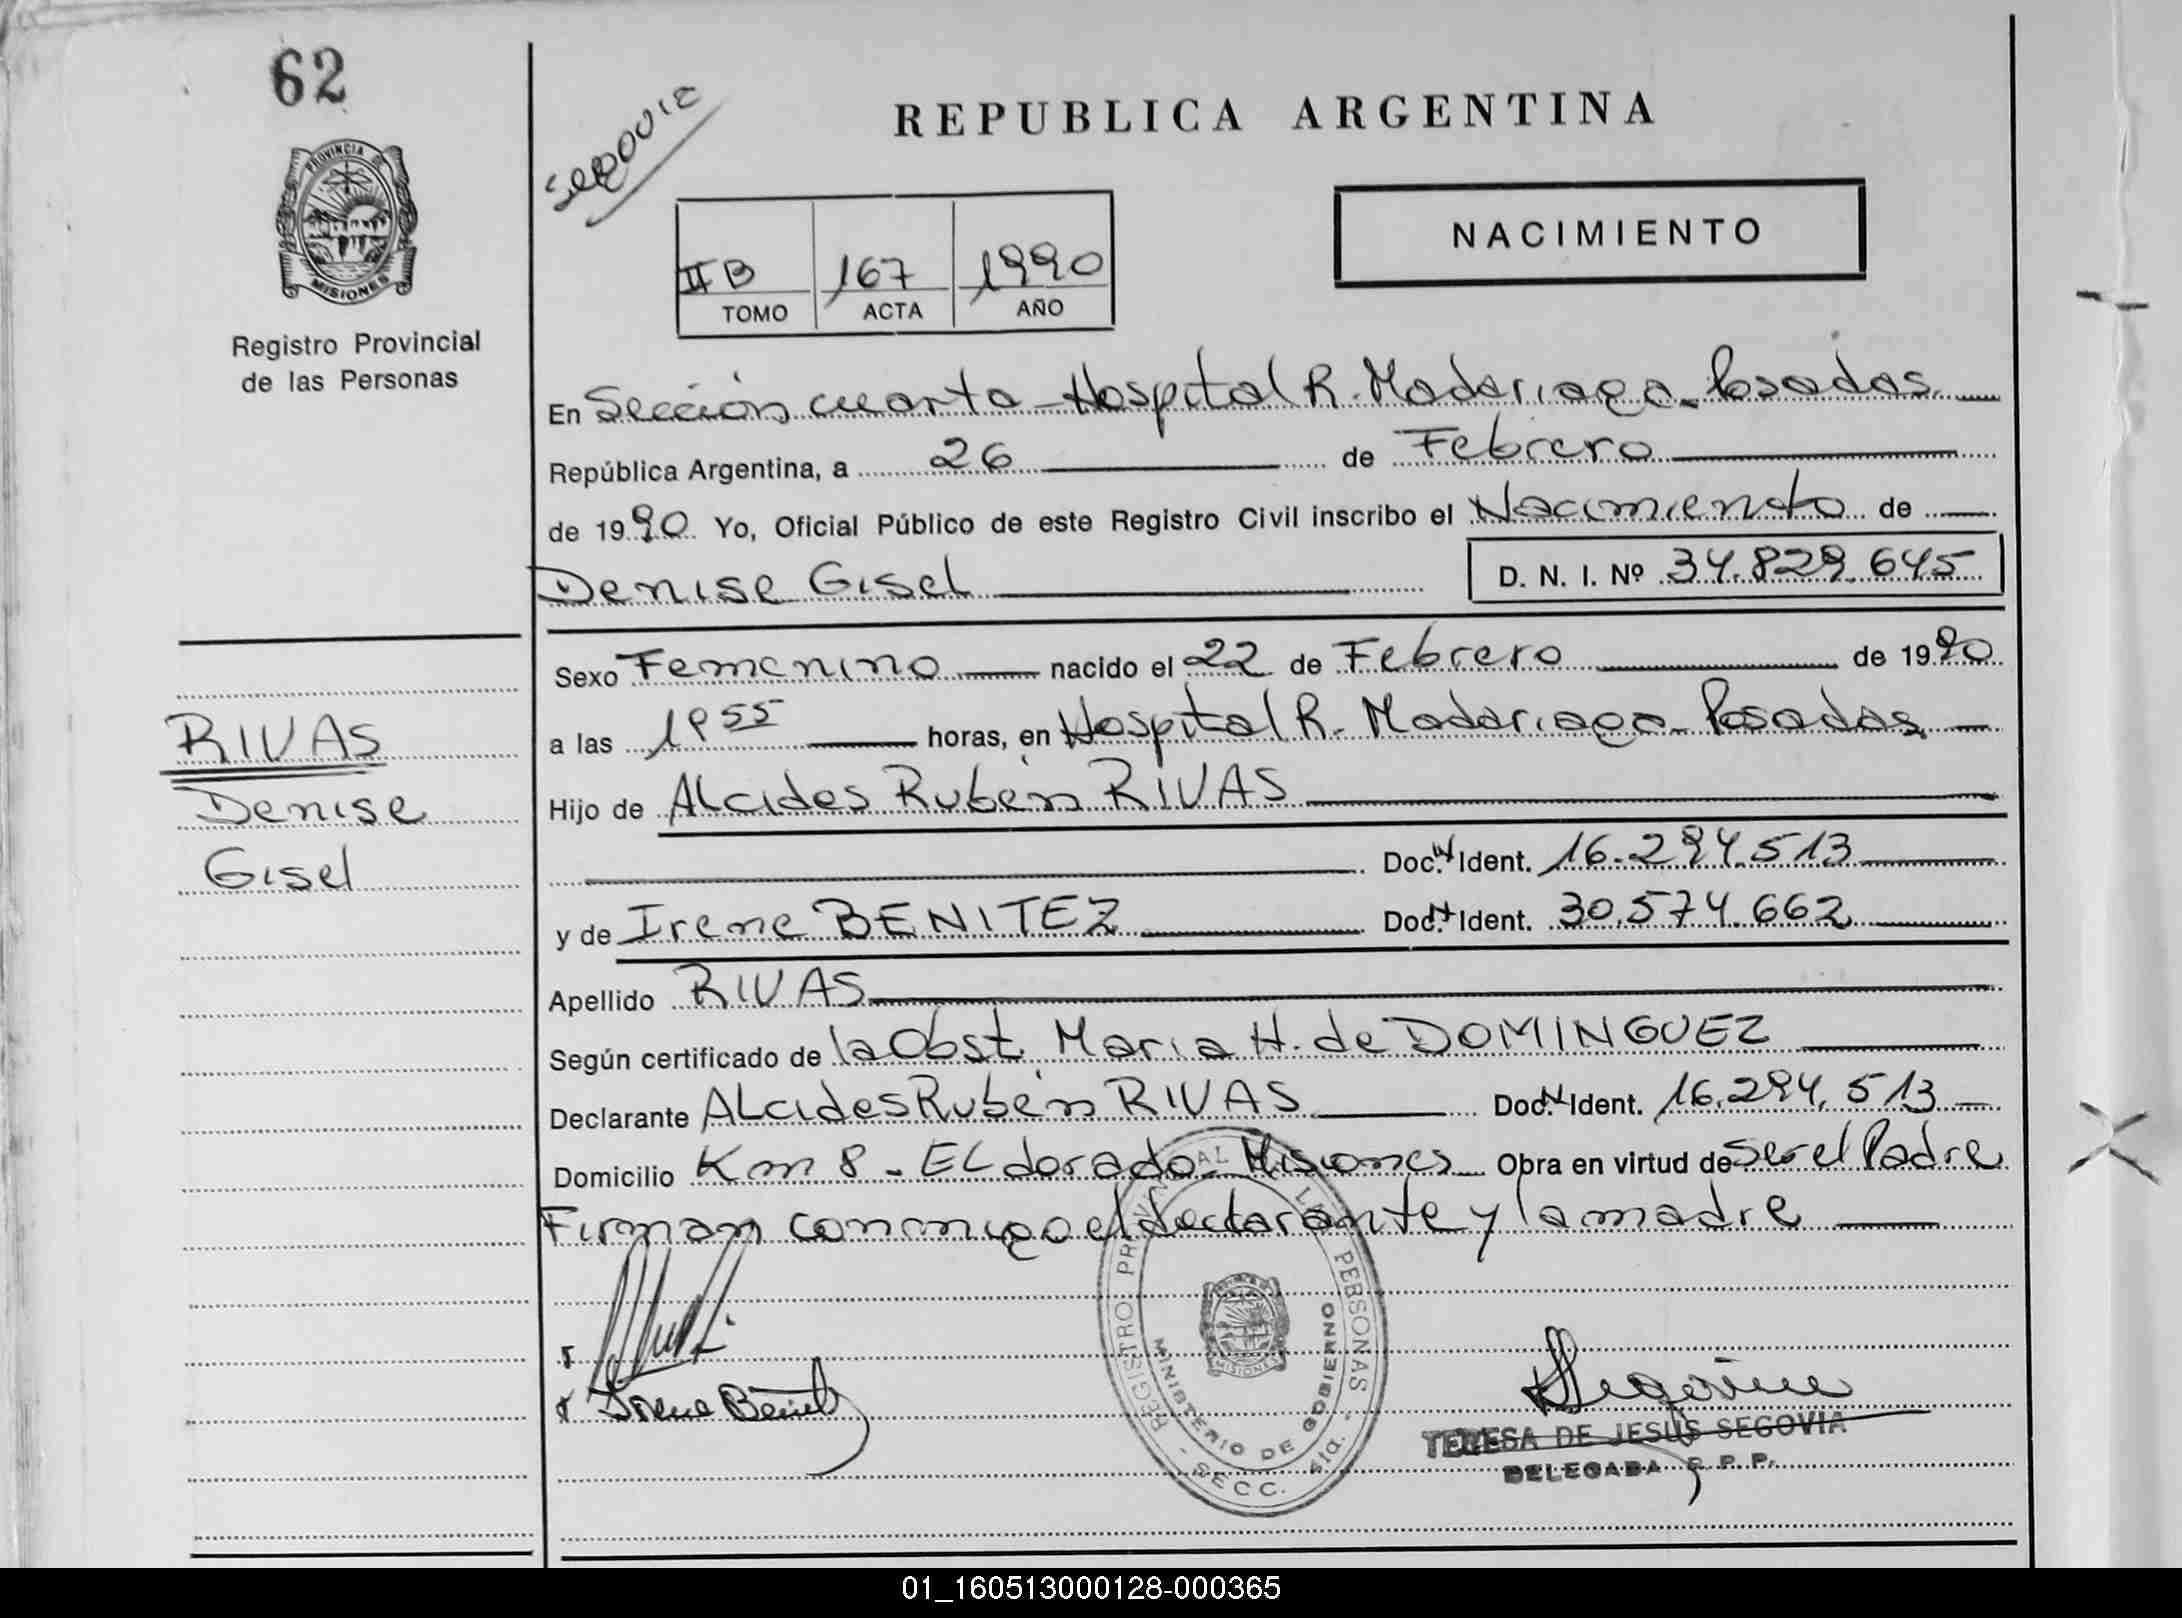 62
PROVINCIA DE
MISIONES
Registro Provincial
de las Personas
RIVAS
Denise
Gisel
Segovia
REPUBLICA ARGENTINA
NACIMIENTO
II B 167 1990
TOMO ACTA AÑO
En Sección cuarta - Hospital R. Madariaga - Posadas
República Argentina, a 26 de Febrero
de 1990 Yo, Oficial Público de este Registro Civil inscribo el Nacimiento de
Denise Gisel D. N. I. Nº 34.829.645
Sexo Femenino nacido el 22 de Febrero de 1990
a las 19 55 horas, en Hospital R. Madariaga - Posadas
Hijo de Alcides Rubén RIVAS
Doc. Ident. 16.294.513
y de Irene BENITEZ Doc. Ident. 30.574.662
Apellido RIVAS
Según certificado de la Obst. Maria H. de DOMINGUEZ
Declarante Alcides Rubén RIVAS Doc. Ident. 16.294.513
Domicilio Km 8 - ELdorado - Misiones Obra en virtud de ser el Padre
Firman conmigo el declarante y la madre
REGISTRO PROVINCIAL PERSONAS
MINISTERIO DE GOBIERNO
MISIONES
SECC. 4ta.
Irene Benitez
Segovia
TERESA DE JESUS SEGOVIA
DELEGADA R. P. P.
01_160513000128-000365